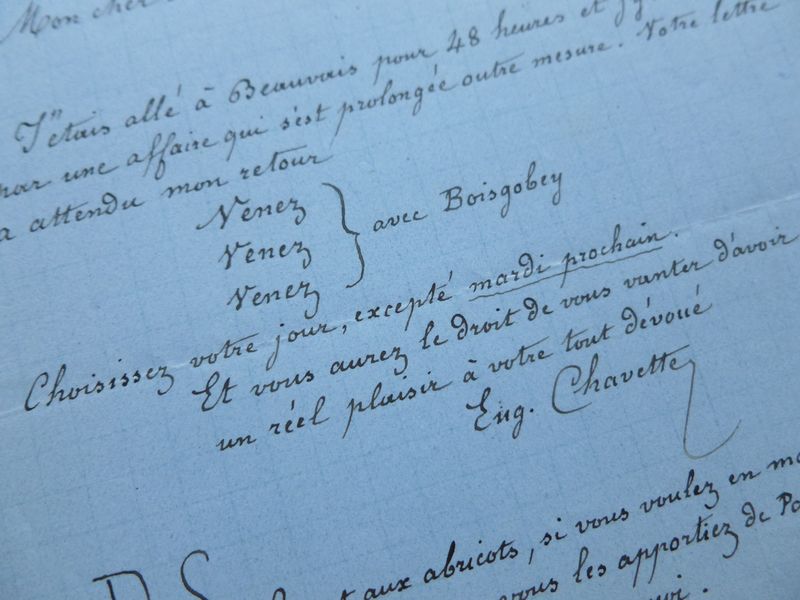 Mon cher
J'étais allé à Beauvais pour 48 heures et j'y
par une affaire qui s'est prolongée outre mesure. Votre lettre
a attendu mon retour
Venez
Venez } avec Boisgobey
Venez
Choisissez votre jour, excepté mardi prochain.
Et vous aurez le droit de vous vanter d'avoir
un réel plaisir à votre tout dévoué
Eug. Chavette
P.S. aux abricots, si vous voulez en
vous les apportiez de